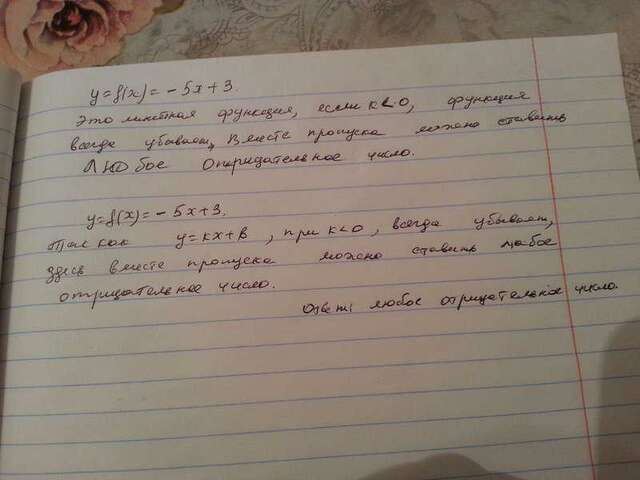 y=f(x)= -5x+3.
Это линейная функция, если k<0, функция
всегда убывает, Вместо пропуска можно ставить
Любое Отрицательное число.
y=f(x)= -5x+3.
Так как y=kx+b, при k<0, всегда убывает,
здесь вместо пропуска можно ставить любое
отрицательное число.
Ответ: любое отрицательное число.